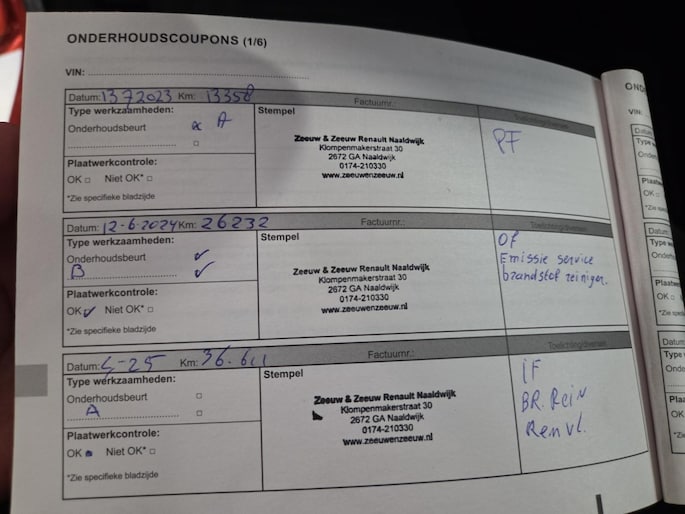 ONDERHOUDSCOUPONS (1/6)
VIN:
Datum: 13 7 2023 Km: 13358 Factuurnr.: Toelichting/diversen
Type werkzaamheden:
Onderhoudsbeurt A
Plaatwerkcontrole:
OK Niet OK*
*Zie specifieke bladzijde
Stempel
Zeeuw & Zeeuw Renault Naaldwijk
Klompenmakerstraat 30
2672 GA Naaldwijk
0174-210330
www.zeeuwenzeeuw.nl
PF
Datum: 12-6-2024 Km: 26232 Factuurnr.: Toelichting/diversen
Type werkzaamheden:
Onderhoudsbeurt ✓
B ✓
Plaatwerkcontrole:
OK ✓ Niet OK*
*Zie specifieke bladzijde
Stempel
Zeeuw & Zeeuw Renault Naaldwijk
Klompenmakerstraat 30
2672 GA Naaldwijk
0174-210330
www.zeeuwenzeeuw.nl
OF
Emissie service
brandstof reiniger.
Datum: -25 Km: 36.611 Factuurnr.: Toelichting/diversen
Type werkzaamheden:
Onderhoudsbeurt
A
Plaatwerkcontrole:
OK Niet OK*
*Zie specifieke bladzijde
Stempel
Zeeuw & Zeeuw Renault Naaldwijk
Klompenmakerstraat 30
2672 GA Naaldwijk
0174-210330
www.zeeuwenzeeuw.nl
IF
BR. Rein
Renvl.